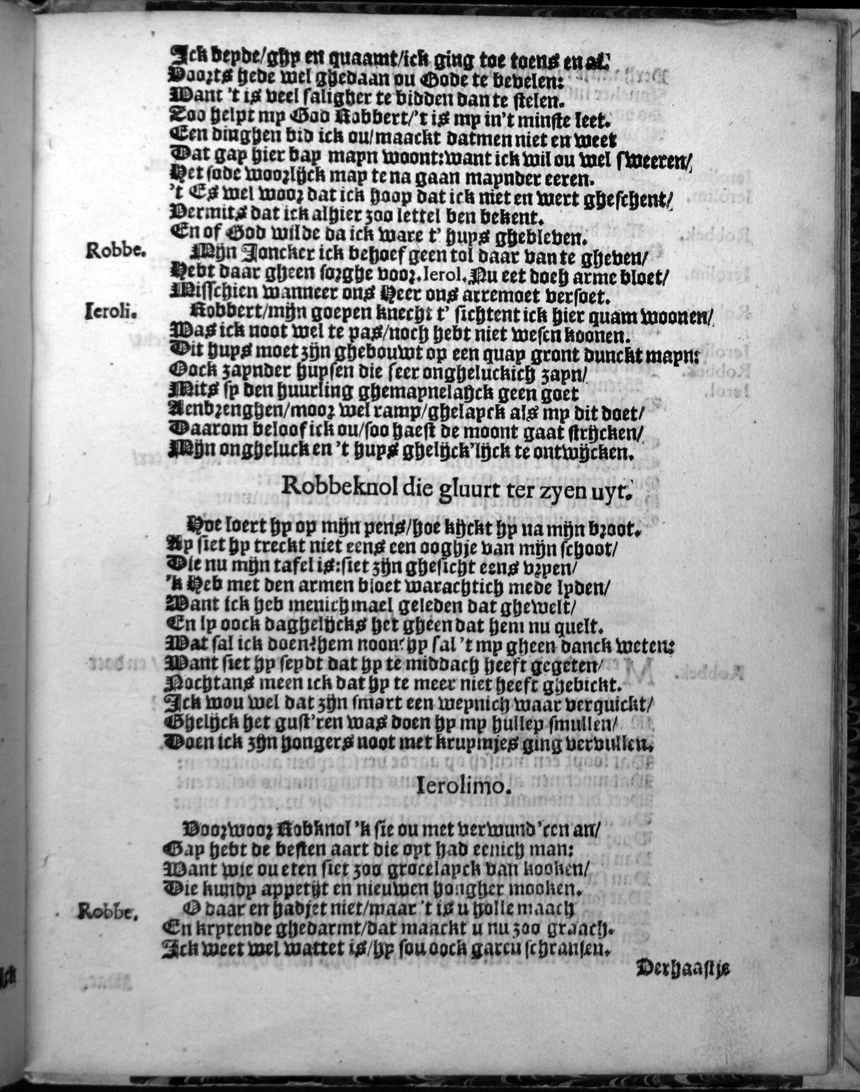 Ick beyde/ghy en quaamt/ick ging toe toens en at.
Voorts hede wel ghedaan ou Gode te bevelen:
Want 't is veel saligher te bidden dan te stelen.
Zoo helpt my God Robbert/'t is my in't minste leet.
Een dinghen bid ick ou/maackt datmen niet en weet
Dat gay hier bay mayn woont: want ick wil ou wel sweeren/
Het sode woorlijck may te na gaan maynder eeren.
't Es wel woor dat ick hoop dat ick niet en wert gheschent/
Vermits dat ick alhier zoo lettel ben bekent.
En of God wilde da ick ware t' huys ghebleven.
Robbe. Mijn Joncker ick behoef geen tol daar van te gheven/
Hebt daar gheen sorghe voor. Ierol. Nu eet doch arme bloet/
Misschien wanneer ons Heer ons arremoet versoet.
Ieroli. Robbert/mijn goeyen knecht t' sichtent ick hier quam woonen/
Was ick noot wel te pas/noch hebt niet wesen koonen.
Dit huys moet zijn ghebouwt op een quay gront dunckt mayn:
Oock zaynder huysen die seer ongheluckich zayn/
Mits sy den huurling ghemaynelayck geen goet
Aenbrenghen/moor wel ramp/ghelayck als my dit doet/
Daarom beloof ick ou/soo haest de moont gaat strijcken/
Mijn ongheluck en 't huys ghelijck'lijck te ontwijcken.
Robbeknol die gluurt ter zyen uyt.
Hoe loert hy op mijn pens/hoe kijckt hy na mijn broot.
Ay siet hy treckt niet eens een ooghje van mijn schoot/
Die nu mijn tafel is: siet zijn ghesicht eens vryen/
'k Heb met den armen bloet warachtich mede lyden/
Want ick heb menichmael geleden dat ghewelt/
En ly oock daghelijcks het gheen dat hem nu quelt.
Wat sal ick doen? hem noon? hy sal 't my gheen danck weten:
Want siet hy seydt dat hy te middach heeft gegeten/
Nochtans meen ick dat hy te meer niet heeft ghebickt.
Ick wou wel dat zijn smart een weynich waar verquickt/
Ghelijck het gust'ren was doen hy my hulley smullen/
Doen ick zijn hongers noot met kruymjes ging vervullen.
Ierolimo.
Voorwoor Robknol 'k sie ou met verwund'ren an/
Gay hebt de besten aart die oyt had eenich man:
Want wie ou eten siet zoo grocelayck van kooken/
Die kundy appetijt en nieuwen hongher mooken.
Robbe. O daar en hadjet niet/maar 't is u holle maach
En krytende ghedarmt/dat maackt u nu zoo graach.
Ick weet wel wattet is/hy sou oock gaeru schransen.
Derhaastje